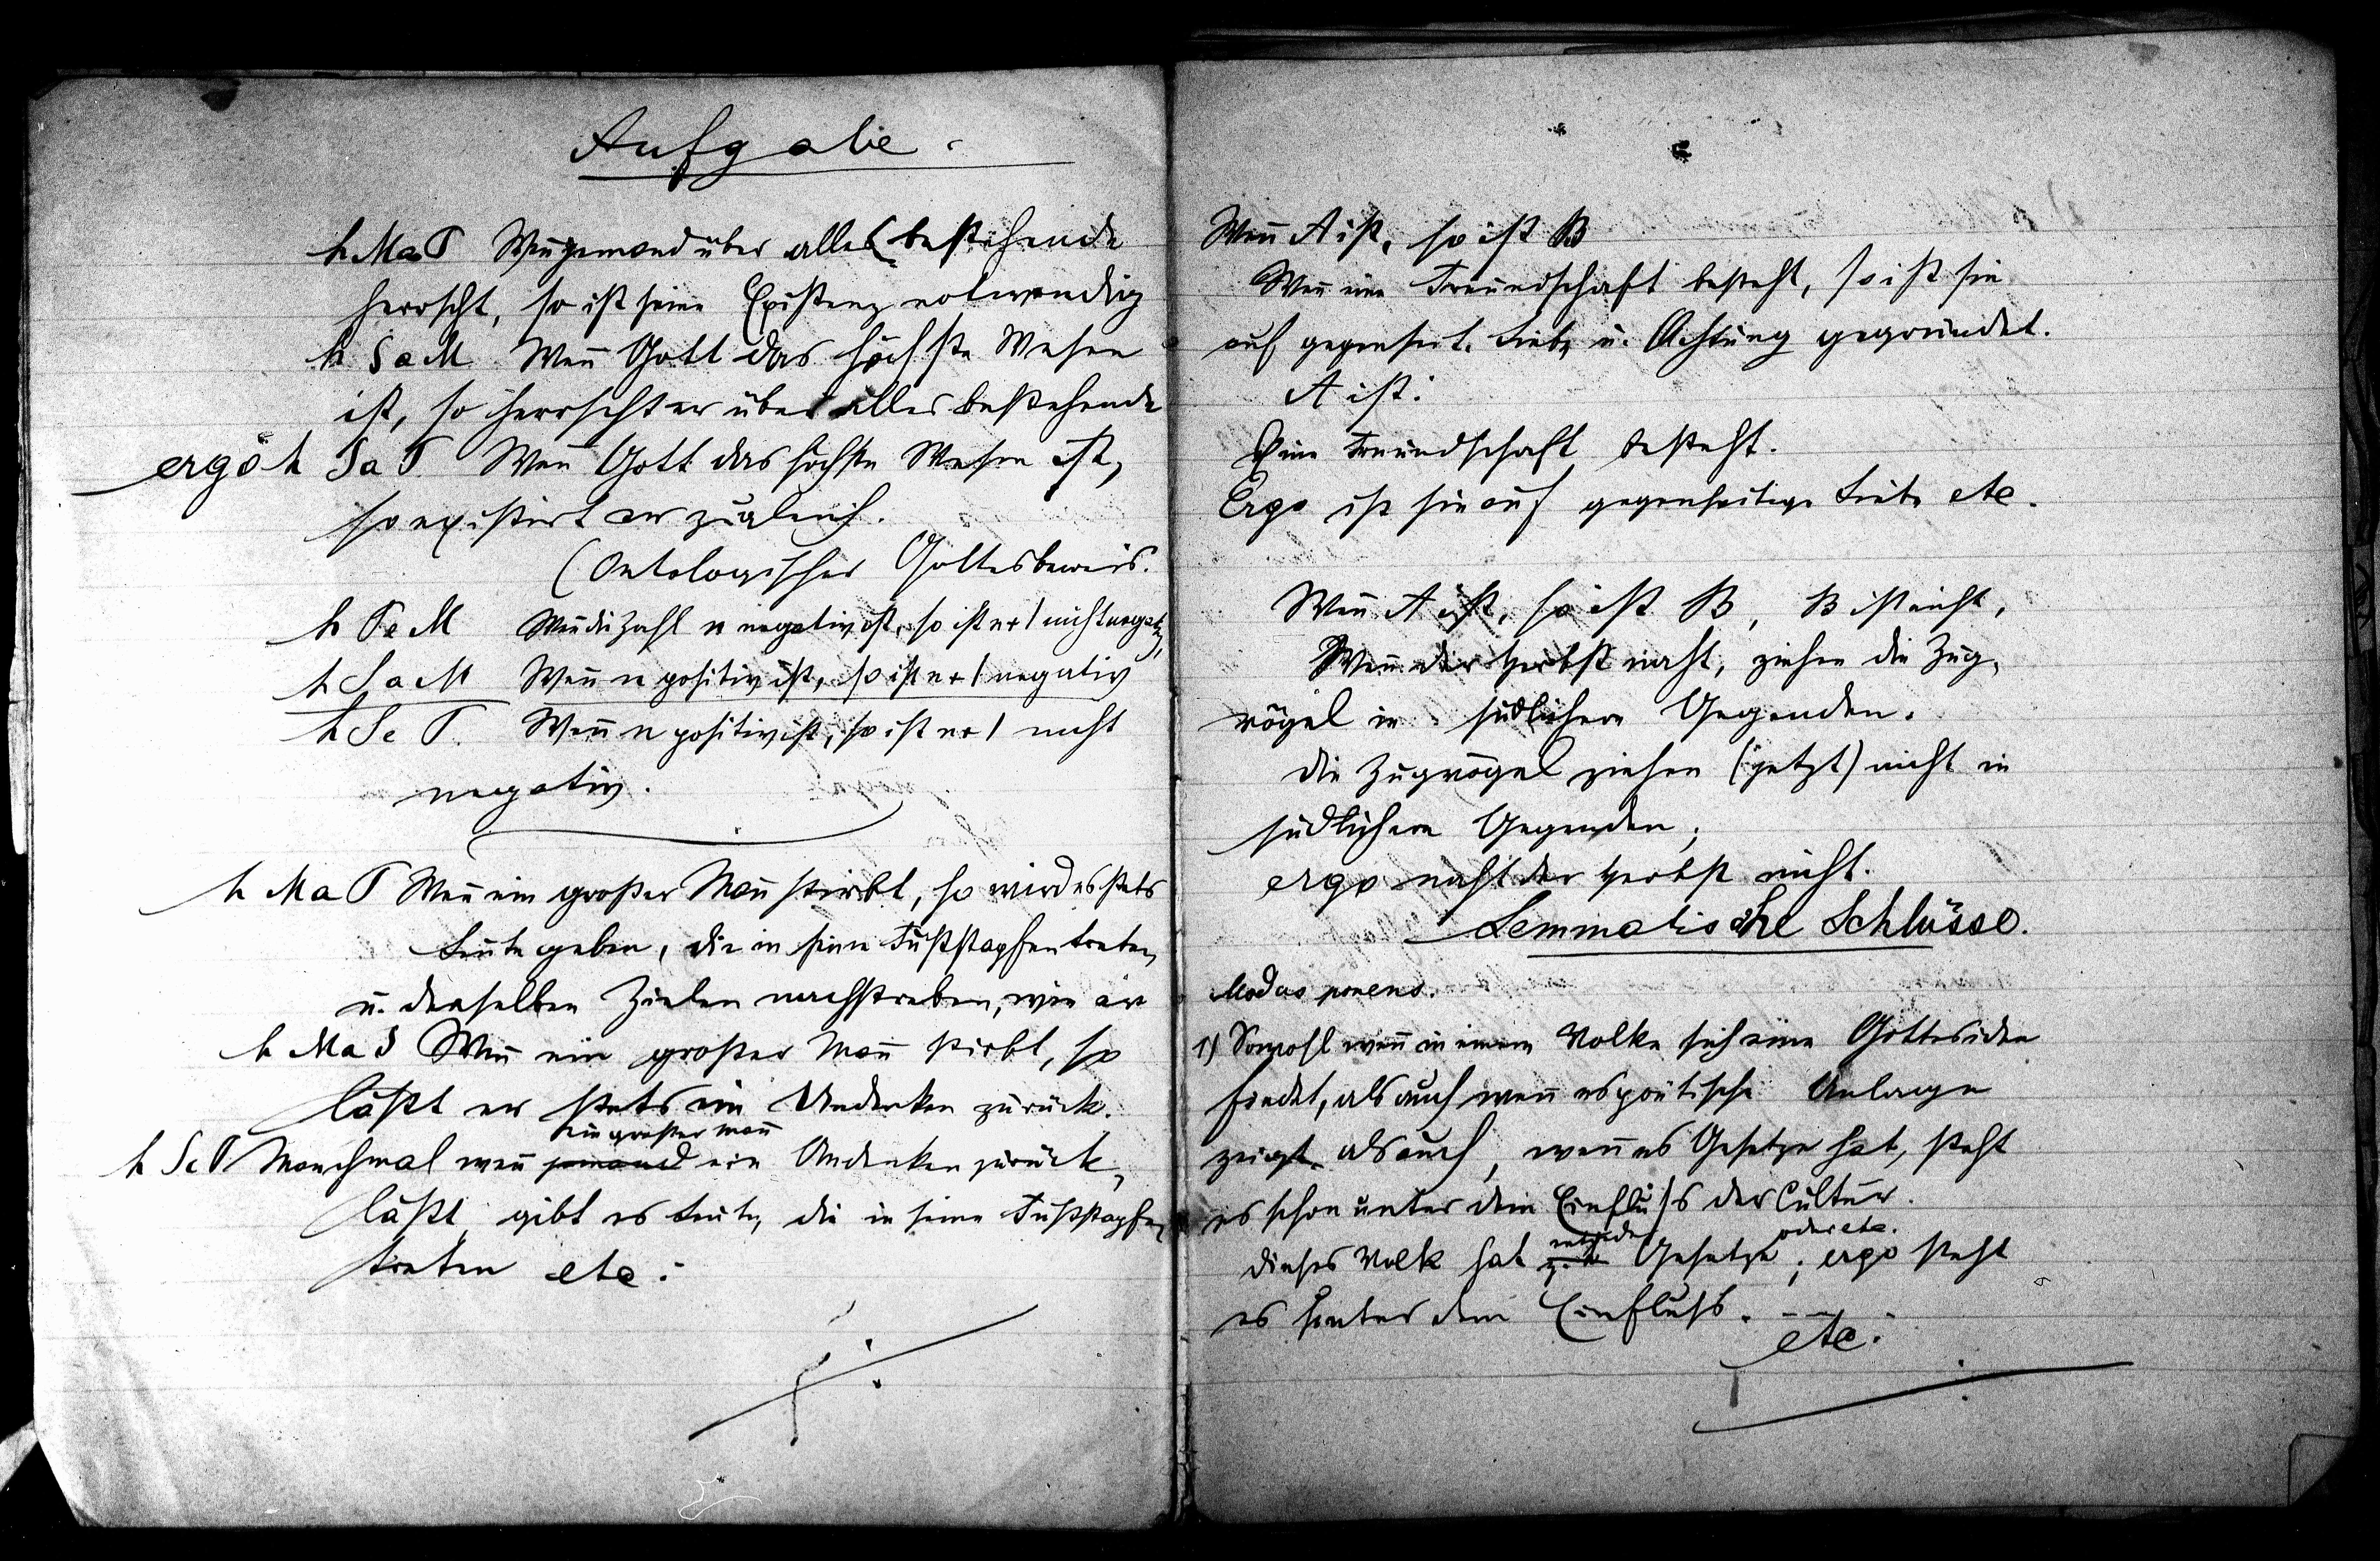 Aufgabe.
h MaP Weñ jemand über alles bestehende
herrscht, so ist seine Existenz notwendig
h SaM Weñ Gott das höchste Wesen
ist, so herrscht er über alles bestehende
ergo h SaP Weñ Gott das höchste Wesen ist,
so existirt er zugleich.
(Ontologischer Gottesbeweis.
h PeM Weñ die Zahl n negativ ist, so ist n+1 nicht negativ,
h SaM Weñ n positiv ist, so ist n+1 negativ
h SeP. Weñ n positiv ist, so ist n+1 nicht
negativ.
h MaP Weñ ein großer Mañ stirbt, so wird es stets
Leute geben, die in seine Fußstapfen treten,
u. denselben Zielen nachstreben, wie er
h MaS Weñ ein großer Mañ stirbt, so
läßt er stets ein Andenken zurück.
ein großer Mañ
h SiP Manchmal weñ jemand ein Andenken zurück,
läßt, gibt es Leute, die in seine Fußstapfen
treten etc:
Weñ A ist, so ist B
Weñ eine Freundschaft besteht, so ist sie
auf gegenseit. Liebe u. Achtung gegründet.
A ist.
Eine Freundschaft besteht.
Ergo ist sie auf gegenseitige Liebe etc.
Weñ A ist, so ist B, B ist nicht,
Weñ der Herbst naht, ziehen die Zug-
vögel in südlichere Gegenden.
die Zugvögel ziehen (jetzt) nicht in
südlichere Gegenden,
ergo naht der Herbst nicht.
Lemmatische Schlüsse.
Modus ponens.
1) Sowohl weñ in einem Volke sich eine Gottesidee
findet, als auch weñ es poetische Anlage
zeigt als auch, weñ es Gesetze hat, steht
es schon unter dem Einfluß der Cultur.
entweder oder etc.
dieses Volk hat z.B. Gesetze; ergo steht
es unter dem Einfluß. - -
etc: